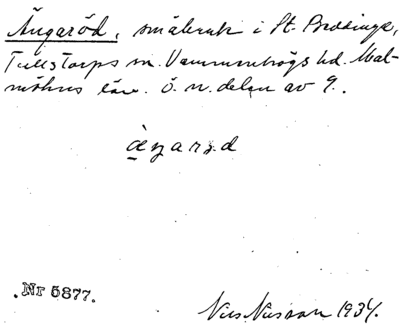 Ängaröd, småbruk i St. Beddinge,
Tullstorps sn. Vemmenhögs hd. Mal-
möhus län. Ö. n. delen av 9.
Nr 5877.
Nils Nilsson 1934.